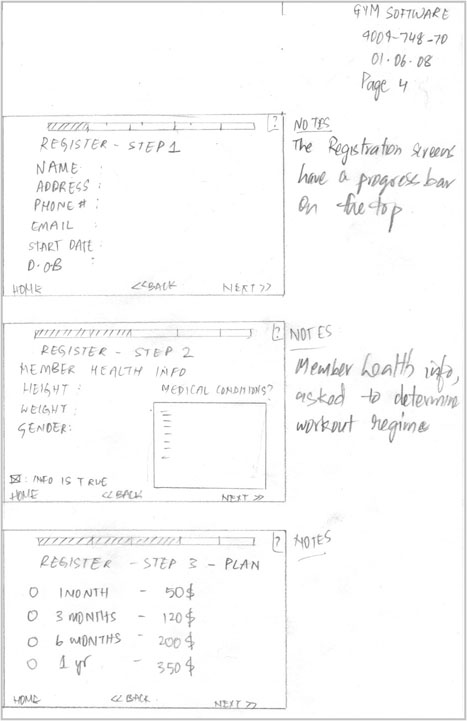 GYM SOFTWARE
4009-748-70
01.06.08
Page 4
?
REGISTER - STEP 1
NAME :
ADDRESS :
PHONE # :
EMAIL :
START DATE :
D.OB :
HOME <<BACK NEXT >>
NOTES
The Registration screens
have a progress bar
on the top
?
REGISTER - STEP 2
MEMBER HEALTH INFO
HEIGHT : MEDICAL CONDITIONS?
WEIGHT :
GENDER:
☒ : INFO IS TRUE
HOME << BACK NEXT >>
NOTES
Member health info,
asked to determine
workout regime
?
REGISTER - STEP 3 - PLAN
O 1 MONTH - 50$
O 3 MONTHS - 120$
O 6 MONTHS - 200$
O 1 yr - 350$
HOME << BACK NEXT >>
NOTES